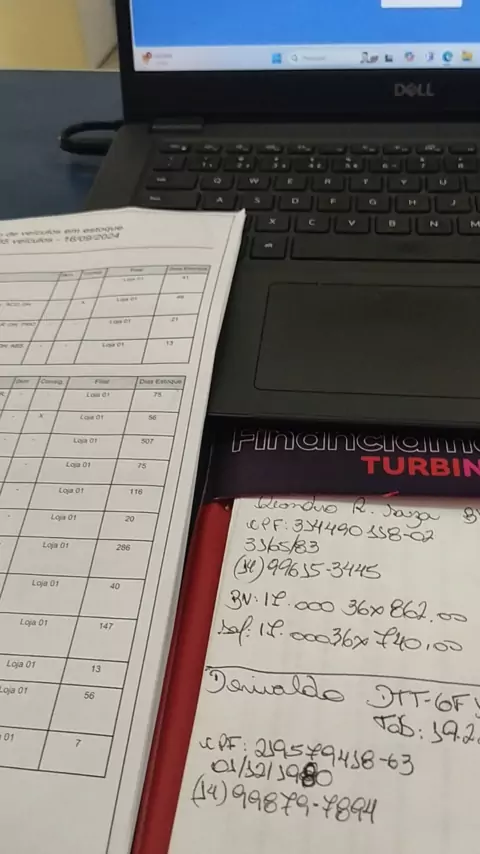 DELL
Q W E R T Y U
A S D F G H J
X C V B N M
de veículos em estoque
veículos - 16/09/2024
Consig. Filial Dias Estoque
Loja 01 41
x Loja 01
Loja 01 21
Loja 01 13
Consig. Filial Dias Estoque
- - Loja 01 75
- x Loja 01 56
- - Loja 01 507
Loja 01 75
Loja 01 116
Loja 01 20
Loja 01 286
Loja 01 40
Loja 01 147
Loja 01 13
Loja 01 56
01 7
Financiam
TURBIN
R. Souza
CPF: 314490118-02
(14) 99615-3445
BV: 17.000 36x 862,00
17.000 36x 740,00
Derivaldo
CPF: 219579418-63
01/12/1980
(14) 99879-7894